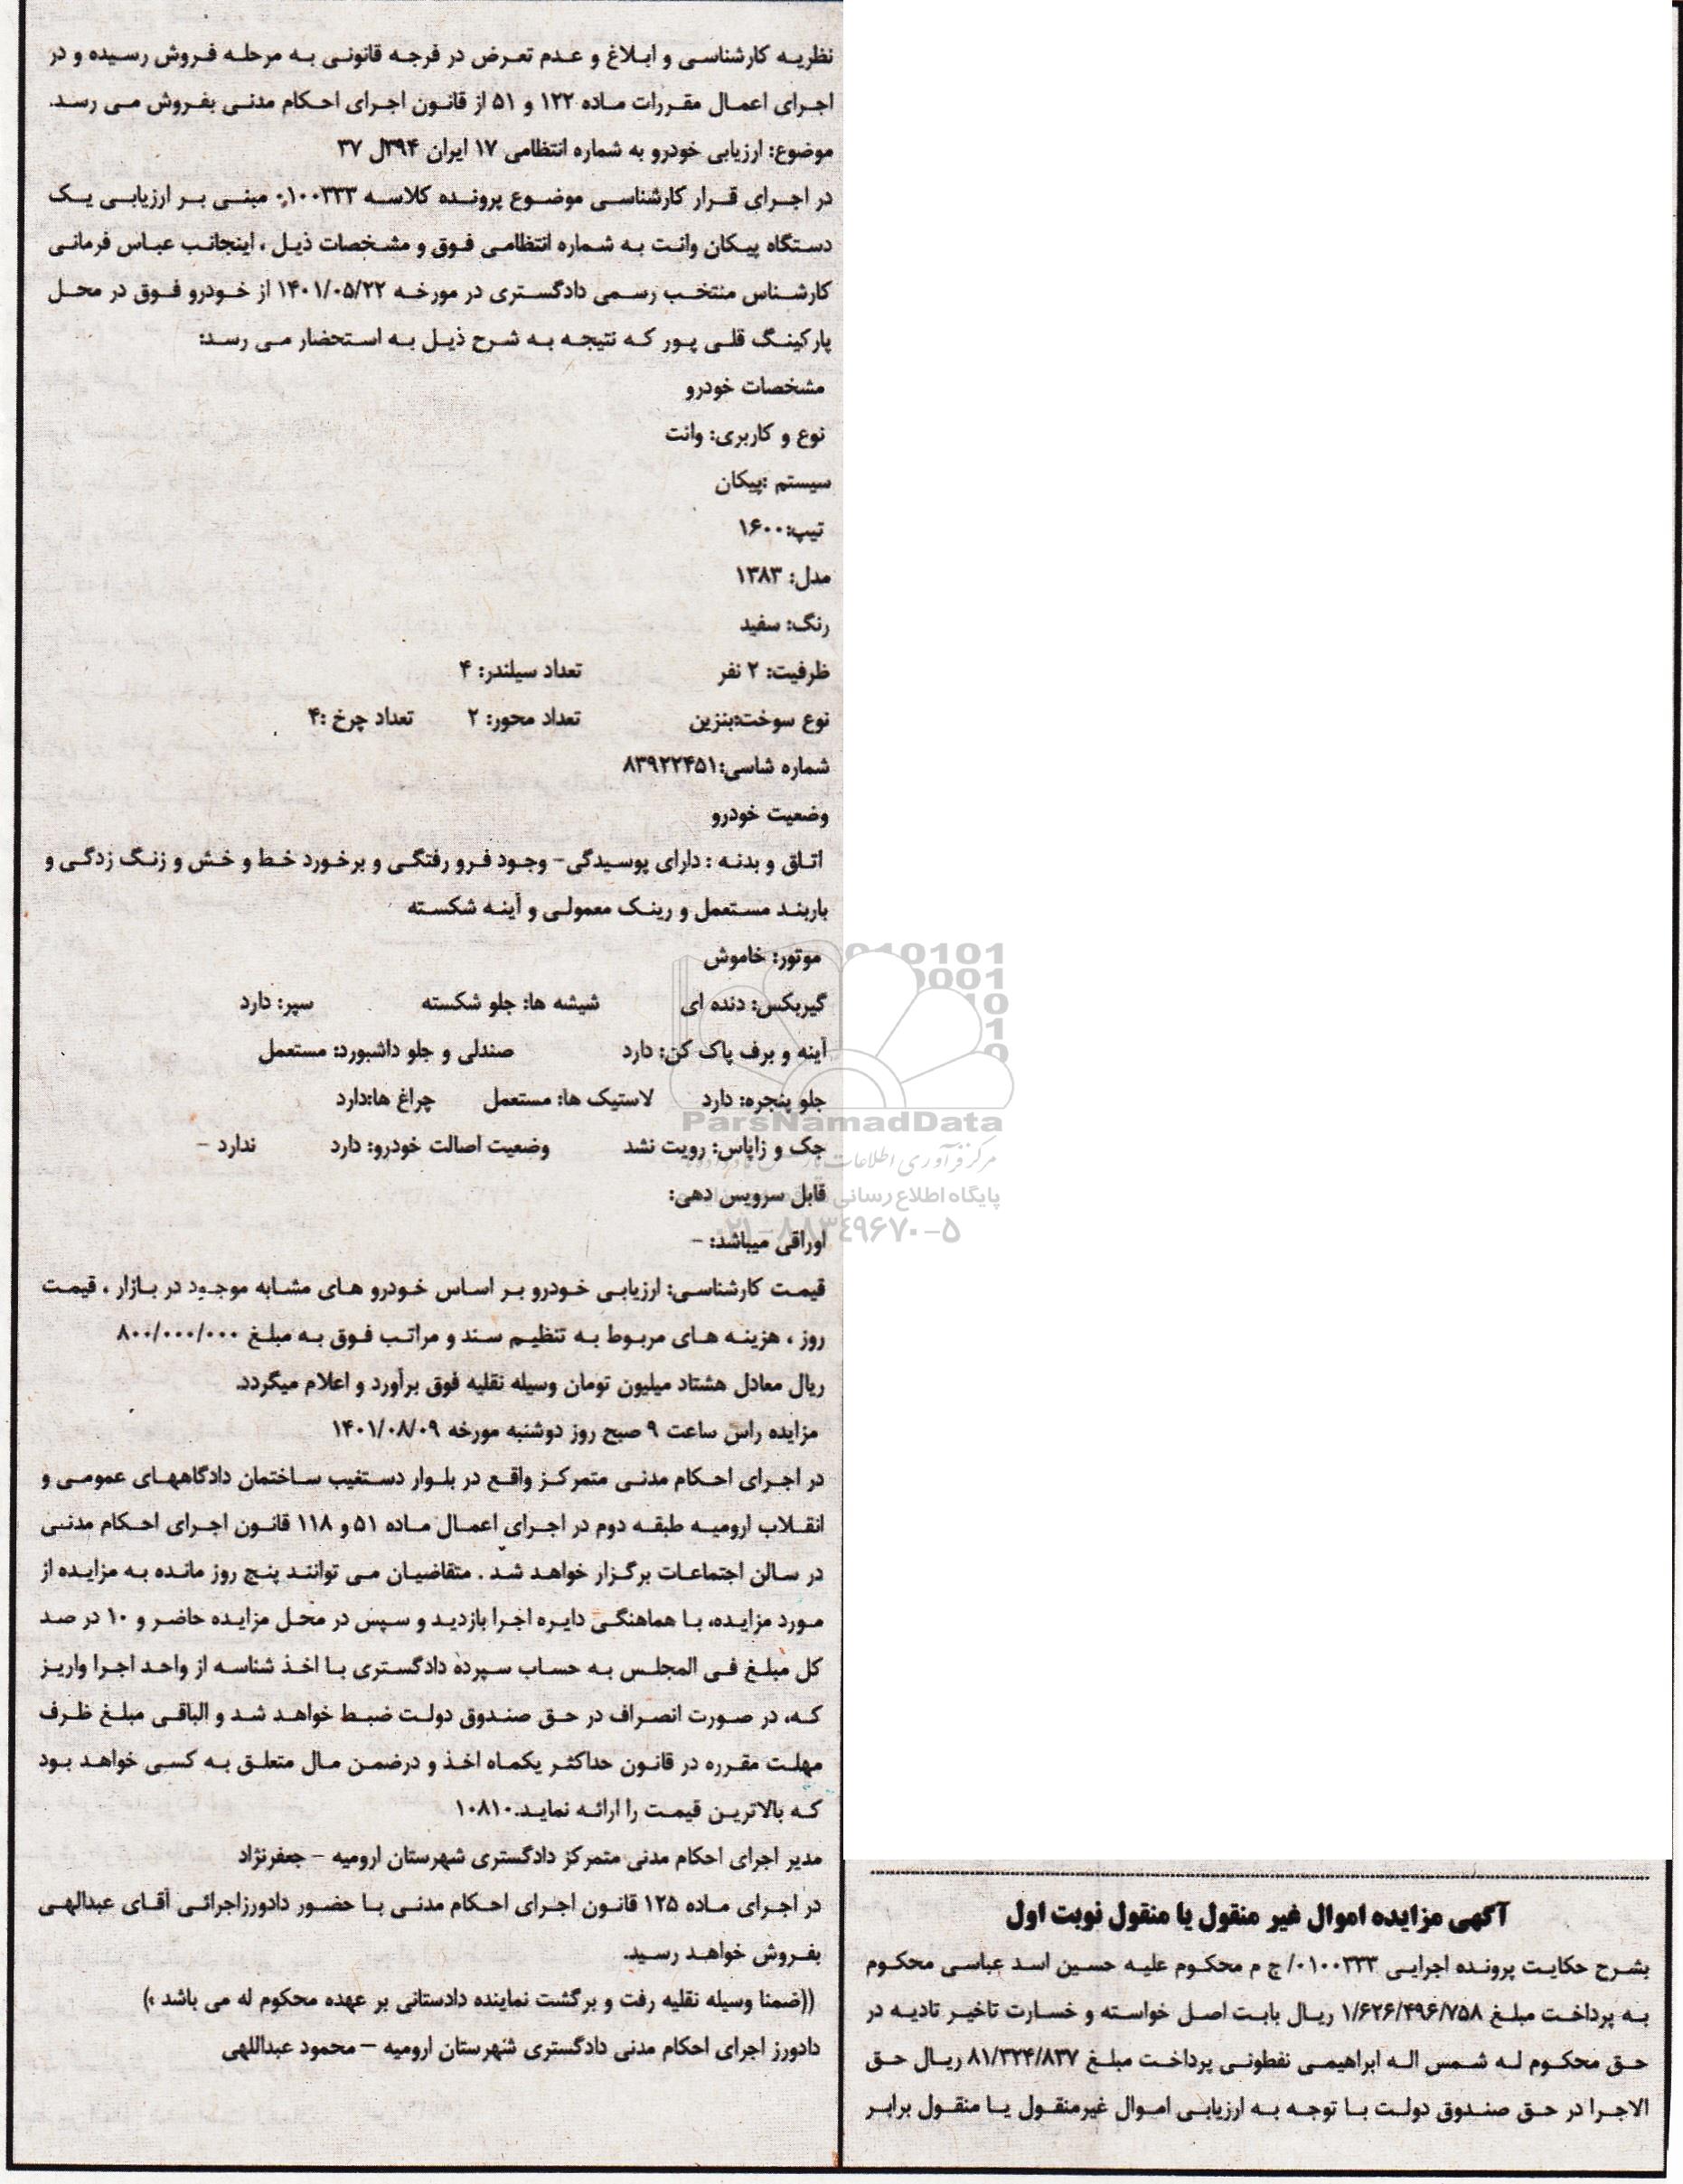 آگهی مزایده اموال غیر منقول یا منقول نوبت اول
بشرح حکایت پرونده اجرایی ۰۱۰۰۳۳۳/ ج م محکوم علیه حسین اسد عباسی محکوم
به پرداخت مبلغ ۱/۶۲۶/۴۹۶/۷۵۸ ریال بابت اصل خواسته و خسارت تاخیر تادیه در
حق محکوم له شمس اله ابراهیمی نفطونی پرداخت مبلغ ۸۱/۳۲۴/۸۳۷ ریال حق
الاجرا در حق صندوق دولت با توجه به ارزیابی اموال غیرمنقول یا منقول برابر
نظریه کارشناسی و ابلاغ و عدم تعرض در فرجه قانونی به مرحله فروش رسیده و در
اجرای اعمال مقررات ماده ۱۲۲ و ۵۱ از قانون اجرای احکام مدنی بفروش می رسد.
موضوع: ارزیابی خودرو به شماره انتظامی ۱۷ ایران ۳۹۴ل ۳۷
در اجرای قرار کارشناسی موضوع پرونده کلاسه ۰۱۰۰۳۳۳ مبنی بر ارزیابی یک
دستگاه پیکان وانت به شماره انتظامی فوق و مشخصات ذیل ، اینجانب عباس فرمانی
کارشناس منتخب رسمی دادگستری در مورخه ۱۴۰۱/۰۵/۲۲ از خودرو فوق در محل
پارکینگ قلی پور که نتیجه به شرح ذیل به استحضار می رسد:
مشخصات خودرو
نوع و کاربری: وانت
سیستم :پیکان
تیپ:۱۶۰۰
مدل: ۱۳۸۳
رنگ: سفید
ظرفیت: ۲ نفر تعداد سیلندر: ۴
نوع سوخت:بنزین تعداد محور: ۲ تعداد چرخ :۴
شماره شاسی:۸۳۹۲۲۴۵۱
وضعیت خودرو
اتاق و بدنه : دارای پوسیدگی- وجود فرو رفتگی و برخورد خط و خش و زنگ زدگی و
باربند مستعمل و رینک معمولی و آینه شکسته
موتور: خاموش
گیربکس: دنده ای شیشه ها: جلو شکسته سپر: دارد
آینه و برف پاک کن: دارد صندلی و جلو داشبورد: مستعمل
جلو پنجره: دارد لاستیک ها: مستعمل چراغ ها:دارد
جک و زاپاس: رویت نشد وضعیت اصالت خودرو: دارد ندارد -
قابل سرویس دهی:
اوراقی میباشد: -
قیمت کارشناسی: ارزیابی خودرو بر اساس خودرو های مشابه موجود در بازار ، قیمت
روز ، هزینه های مربوط به تنظیم سند و مراتب فوق به مبلغ ۸۰۰/۰۰۰/۰۰۰
ریال معادل هشتاد میلیون تومان وسیله نقلیه فوق برآورد و اعلام میگردد.
مزایده راس ساعت ۹ صبح روز دوشنبه مورخه ۱۴۰۱/۰۸/۰۹
در اجرای احکام مدنی متمرکز واقع در بلوار دستغیب ساختمان دادگاههای عمومی و
انقلاب ارومیه طبقه دوم در اجرای اعمال ماده ۵۱ و ۱۱۸ قانون اجرای احکام مدنی
در سالن اجتماعات برگزار خواهد شد . متقاضیان می توانند پنج روز مانده به مزایده از
مورد مزایده، با هماهنگی دایره اجرا بازدید و سپس در محل مزایده حاضر و ۱۰ در صد
کل مبلغ فی المجلس به حساب سپرده دادگستری با اخذ شناسه از واحد اجرا واریز
که، در صورت انصراف در حق صندوق دولت ضبط خواهد شد و الباقی مبلغ ظرف
مهلت مقرره در قانون حداکثر یکماه اخذ و درضمن مال متعلق به کسی خواهد بود
که بالاترین قیمت را ارائه نماید.۱۰۸۱۰
مدیر اجرای احکام مدنی متمرکز دادگستری شهرستان ارومیه - جعفرنژاد
در اجرای ماده ۱۲۵ قانون اجرای احکام مدنی با حضور دادورزاجرائی آقای عبدالهی
بفروش خواهد رسید.
((ضمنا وسیله نقلیه رفت و برگشت نماینده دادستانی بر عهده محکوم له می باشد ؛)
دادورز اجرای احکام مدنی دادگستری شهرستان ارومیه – محمود عبداللهی
ParsNamadData
پایگاه اطلاع رسانی
۰۲۱-۸۸۳۴۹۶۷۰-۵